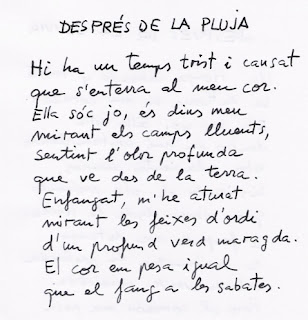 DESPRÉS DE LA PLUJA
Hi ha un temps trist i cansat
que s'enterra al meu cor.
Ella sóc jo, és dins meu
mirant els camps lluents,
sentint l'olor profunda
que ve des de la terra.
Enfangat, m'he aturat
mirant les feixes d'ordi
d'un profund verd maragda.
El cor em pesa igual
que el fang a les sabates.